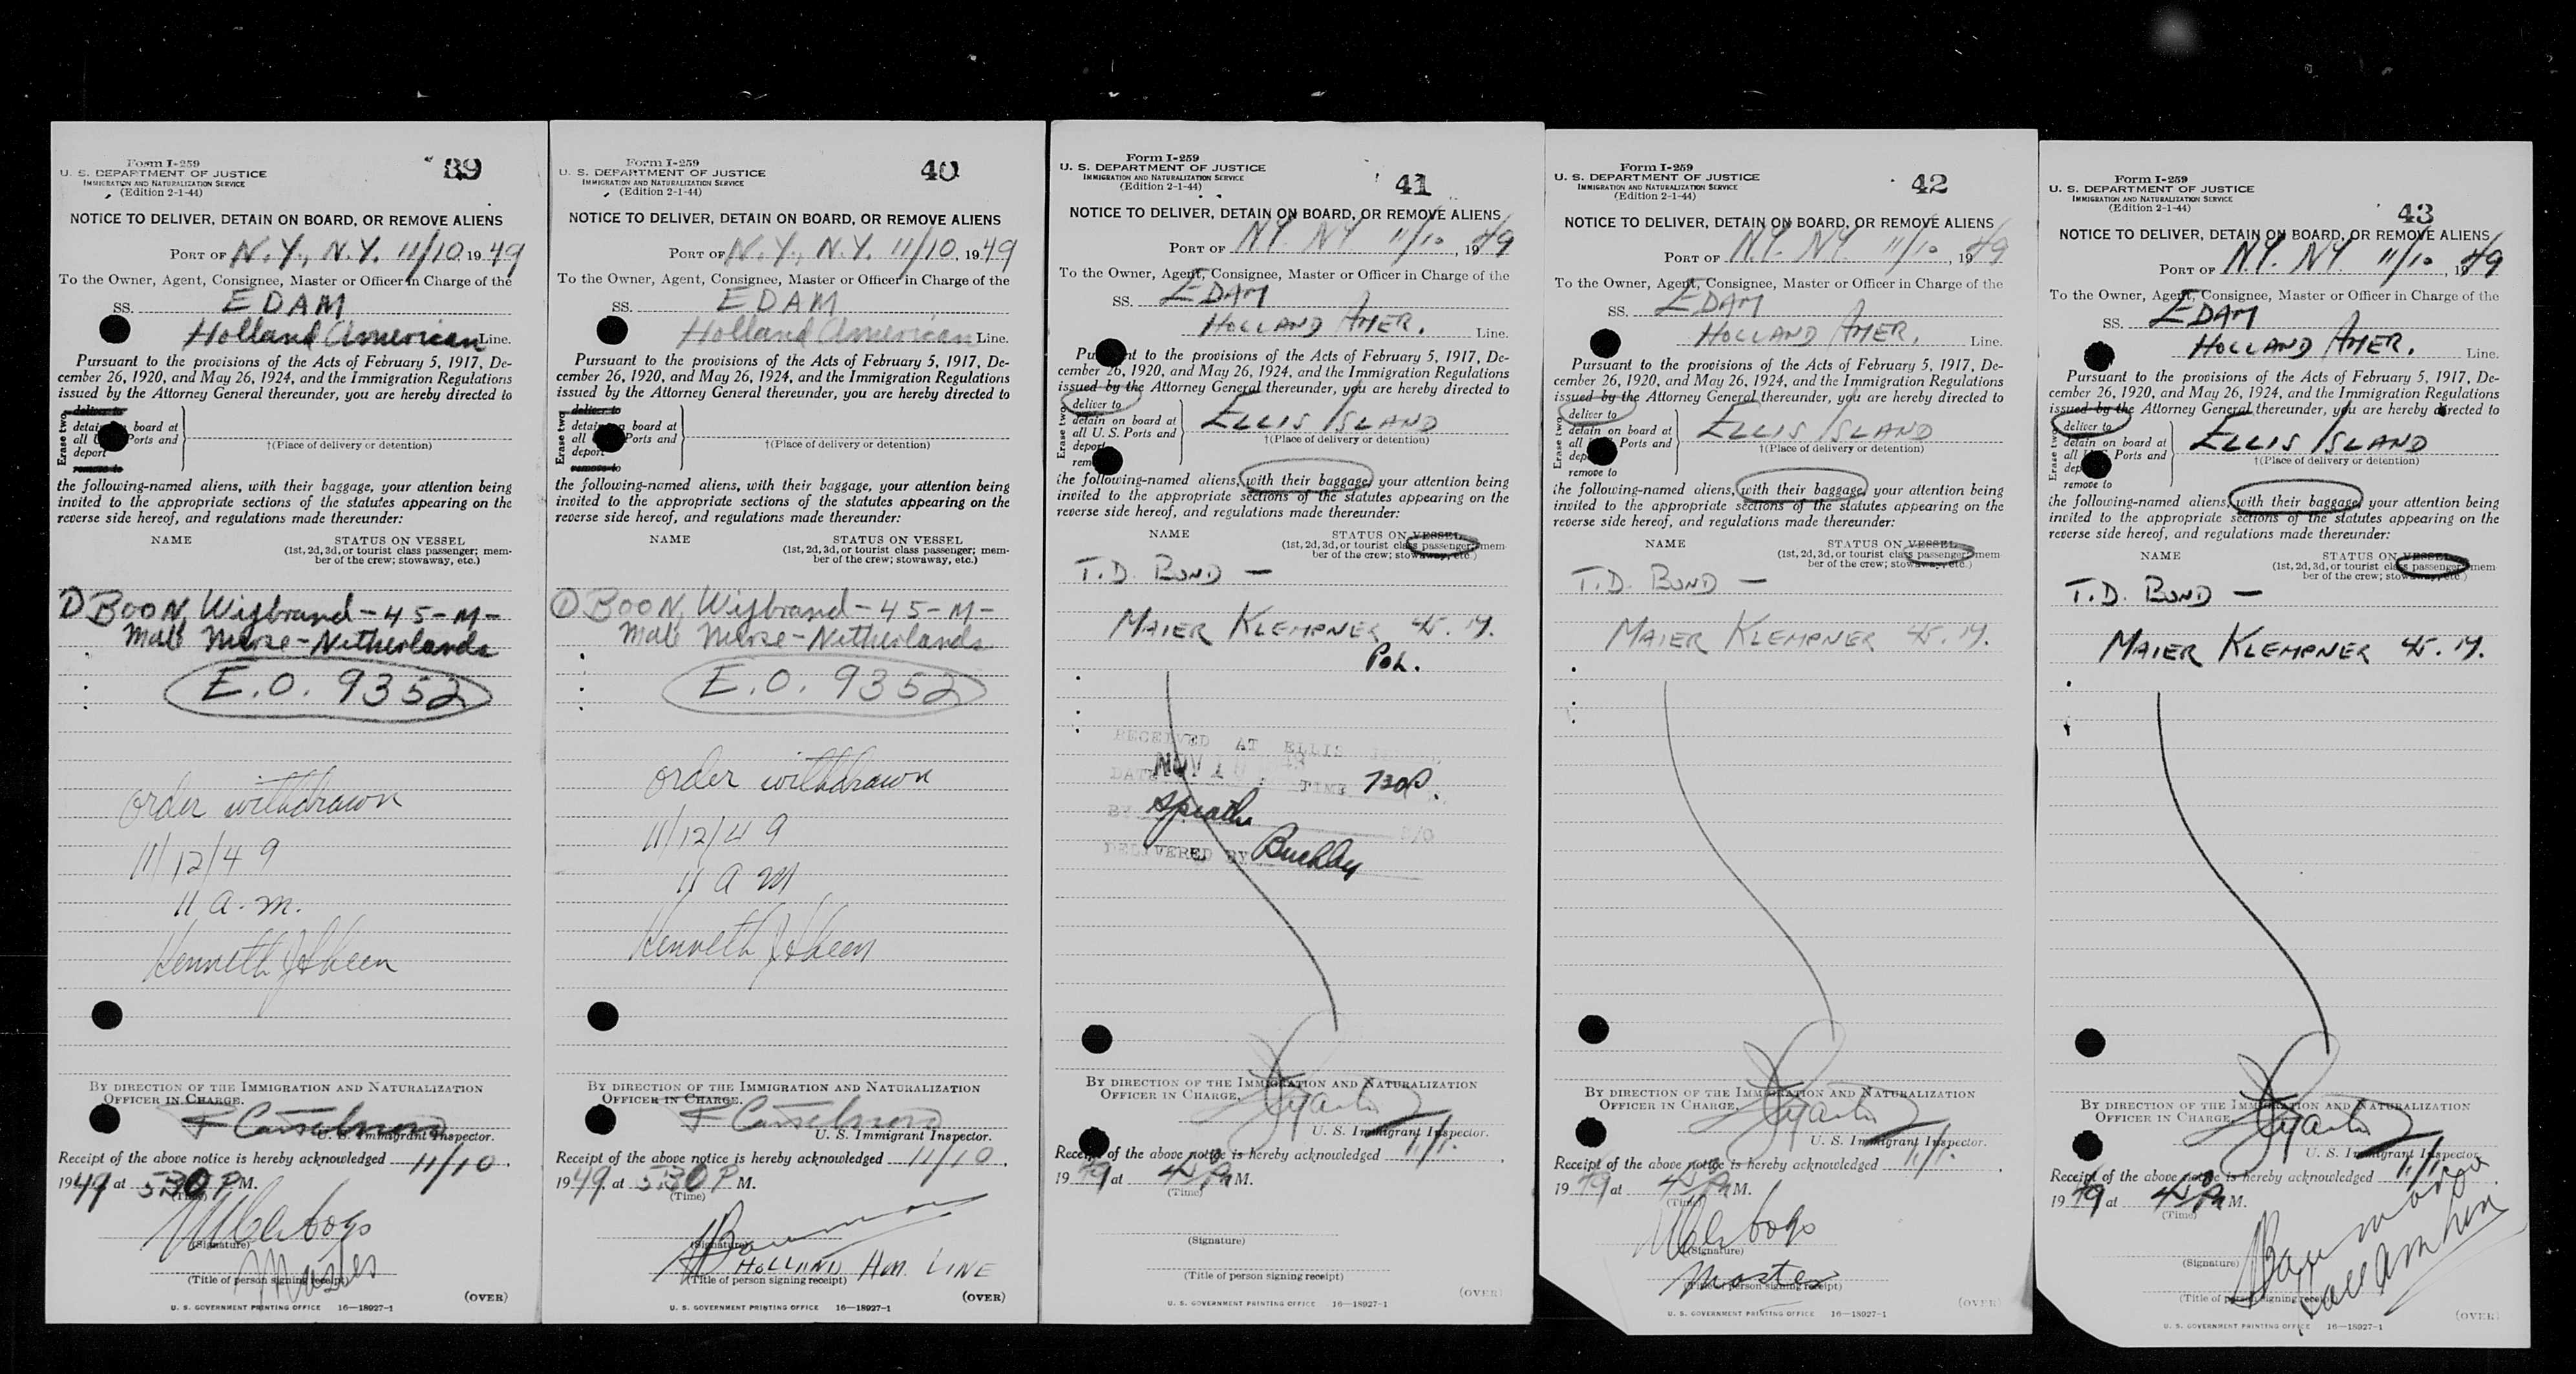 Form I-259
U. S. DEPARTMENT OF JUSTICE
IMMIGRATION AND NATURALIZATION SERVICE
(Edition 2-1-44)
39
NOTICE TO DELIVER, DETAIN ON BOARD, OR REMOVE ALIENS
PORT OF N.Y., N.Y. 11/10 1949
To the Owner, Agent, Consignee, Master or Officer in Charge of the
SS. EDAM
Holland American Line.
Pursuant to the provisions of the Acts of February 5, 1917, De-
cember 26, 1920, and May 26, 1924, and the Immigration Regulations
issued by the Attorney General thereunder, you are hereby directed to
Erase two
deliver to
detain board at
all Ports and
deport
remove to
†(Place of delivery or detention)
the following-named aliens, with their baggage, your attention being
invited to the appropriate sections of the statutes appearing on the
reverse side hereof, and regulations made thereunder:
NAME STATUS ON VESSEL
(1st, 2d, 3d, or tourist class passenger; mem-
ber of the crew; stowaway, etc.)
BOON, Wijbrand - 45 - M -
Netherlands
E.O. 9352
order withdrawn
11/12/49
11 a.m.
Kenneth J
BY DIRECTION OF THE IMMIGRATION AND NATURALIZATION
OFFICER IN CHARGE.
U. S. Immigrant Inspector.
Receipt of the above notice is hereby acknowledged 11/10,
1949 at 530 P M.
(Time)
(Signature)
Master
(Title of person signing receipt)
(OVER)
U. S. GOVERNMENT PRINTING OFFICE 16—18927-1
Form I-259
U. S. DEPARTMENT OF JUSTICE
IMMIGRATION AND NATURALIZATION SERVICE
(Edition 2-1-44)
40
NOTICE TO DELIVER, DETAIN ON BOARD, OR REMOVE ALIENS
PORT OF N.Y., N.Y. 11/10, 1949
To the Owner, Agent, Consignee, Master or Officer in Charge of the
SS. EDAM
Holland American Line.
Pursuant to the provisions of the Acts of February 5, 1917, De-
cember 26, 1920, and May 26, 1924, and the Immigration Regulations
issued by the Attorney General thereunder, you are hereby directed to
Erase two
deliver to
detain board at
all Ports and
deport
remove to
†(Place of delivery or detention)
the following-named aliens, with their baggage, your attention being
invited to the appropriate sections of the statutes appearing on the
reverse side hereof, and regulations made thereunder:
NAME STATUS ON VESSEL
(1st, 2d, 3d, or tourist class passenger; mem-
ber of the crew; stowaway, etc.)
BOON, Wijbrand - 45 - M -
Netherlands
E.O. 9352
order withdrawn
11/12/49
11 a m
Kenneth J
BY DIRECTION OF THE IMMIGRATION AND NATURALIZATION
OFFICER IN CHARGE.
U. S. Immigrant Inspector.
Receipt of the above notice is hereby acknowledged 11/10,
1949. at 530 P M.
(Time)
(Signature)
HOLLAND AM. LINE
(Title of person signing receipt)
(OVER)
U. S. GOVERNMENT PRINTING OFFICE 16—18927-1
Form I-259
U. S. DEPARTMENT OF JUSTICE
IMMIGRATION AND NATURALIZATION SERVICE
(Edition 2-1-44)
41
NOTICE TO DELIVER, DETAIN ON BOARD, OR REMOVE ALIENS
PORT OF N.Y. NY 11/10, 1949
To the Owner, Agent, Consignee, Master or Officer in Charge of the
SS. EDAM
HOLLAND AMER. Line.
Pursuant to the provisions of the Acts of February 5, 1917, De-
cember 26, 1920, and May 26, 1924, and the Immigration Regulations
issued by the Attorney General thereunder, you are hereby directed to
Erase two
deliver to
detain on board at
all U. S. Ports and
deport
remove to
ELLIS ISLAND
†(Place of delivery or detention)
the following-named aliens, with their baggage, your attention being
invited to the appropriate sections of the statutes appearing on the
reverse side hereof, and regulations made thereunder:
NAME STATUS ON VESSEL
(1st, 2d, 3d, or tourist class passenger; mem-
ber of the crew; stowaway, etc.)
T.D. BOND —
MAIER KLEMPNER 45. M.
POL.
RECEIVED AT ELLIS
DATE NOV TIME 730P.
BY
DELIVERED BY
BY DIRECTION OF THE IMMIGRATION AND NATURALIZATION
OFFICER IN CHARGE,
U. S. Immigrant Inspector.
Receipt of the above notice is hereby acknowledged
1949 at M.
(Time)
(Signature)
(Title of person signing receipt)
(OVER)
U. S. GOVERNMENT PRINTING OFFICE 16—18927-1
Form I-259
U. S. DEPARTMENT OF JUSTICE
IMMIGRATION AND NATURALIZATION SERVICE
(Edition 2-1-44)
42
NOTICE TO DELIVER, DETAIN ON BOARD, OR REMOVE ALIENS
PORT OF N.Y. NY. 11/10, 1949
To the Owner, Agent, Consignee, Master or Officer in Charge of the
SS. EDAM
HOLLAND AMER. Line.
Pursuant to the provisions of the Acts of February 5, 1917, De-
cember 26, 1920, and May 26, 1924, and the Immigration Regulations
issued by the Attorney General thereunder, you are hereby directed to
Erase two
deliver to
detain on board at
all Ports and
remove to
ELLIS ISLAND
†(Place of delivery or detention)
the following-named aliens, with their baggage, your attention being
invited to the appropriate sections of the statutes appearing on the
reverse side hereof, and regulations made thereunder:
NAME STATUS ON VESSEL
(1st, 2d, 3d, or tourist class passenger; mem
ber of the crew; stowaway, etc.)
T.D. BOND —
MAIER KLEMPNER 45. M.
BY DIRECTION OF THE IMMIGRATION AND NATURALIZATION
OFFICER IN CHARGE,
U. S. Immigrant Inspector.
Receipt of the above notice is hereby acknowledged
1949 at M.
(Time)
(Signature)
Master
(Title of person signing receipt)
(OVER)
U. S. GOVERNMENT PRINTING OFFICE 16—18927-1
Form I-259
U. S. DEPARTMENT OF JUSTICE
IMMIGRATION AND NATURALIZATION SERVICE
(Edition 2-1-44)
43
NOTICE TO DELIVER, DETAIN ON BOARD, OR REMOVE ALIENS
PORT OF N.Y. NY. 11/10, 1949
To the Owner, Agent, Consignee, Master or Officer in Charge of the
SS. EDAM
HOLLAND AMER. Line.
Pursuant to the provisions of the Acts of February 5, 1917, De-
cember 26, 1920, and May 26, 1924, and the Immigration Regulations
issued by the Attorney General thereunder, you are hereby directed to
Erase two
deliver to
detain on board at
all Ports and
remove to
ELLIS ISLAND
†(Place of delivery or detention)
the following-named aliens, with their baggage, your attention being
invited to the appropriate sections of the statutes appearing on the
reverse side hereof, and regulations made thereunder:
NAME STATUS ON VESSEL
(1st, 2d, 3d, or tourist class passenger; mem-
ber of the crew; stowaway, etc.)
T.D. BOND —
MAIER KLEMPNER 45. M.
BY DIRECTION OF THE IMMIGRATION AND NATURALIZATION
OFFICER IN CHARGE,
U. S. Immigrant Inspector.
Receipt of the above notice is hereby acknowledged
1949 at M.
(Time)
(Signature)
(Title of person signing receipt)
(OVER)
U. S. GOVERNMENT PRINTING OFFICE 16—18927-1